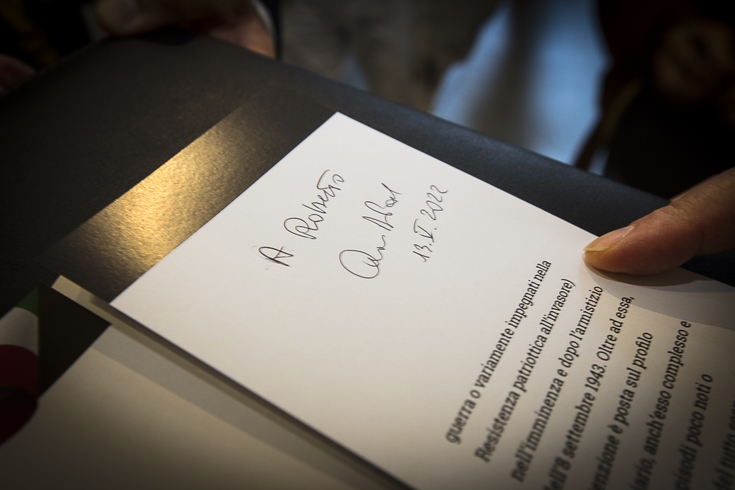 A Roberto
13.V.2022
guerra o variamente impegnati nella
Resistenza patriottica all'invasore)
nell'imminenza e dopo l'armistizio
dell'8 settembre 1943. Oltre ad essa,
enzione è posta sul profilo
iario, anch'esso complesso e
episodi poco noti o
del tutto